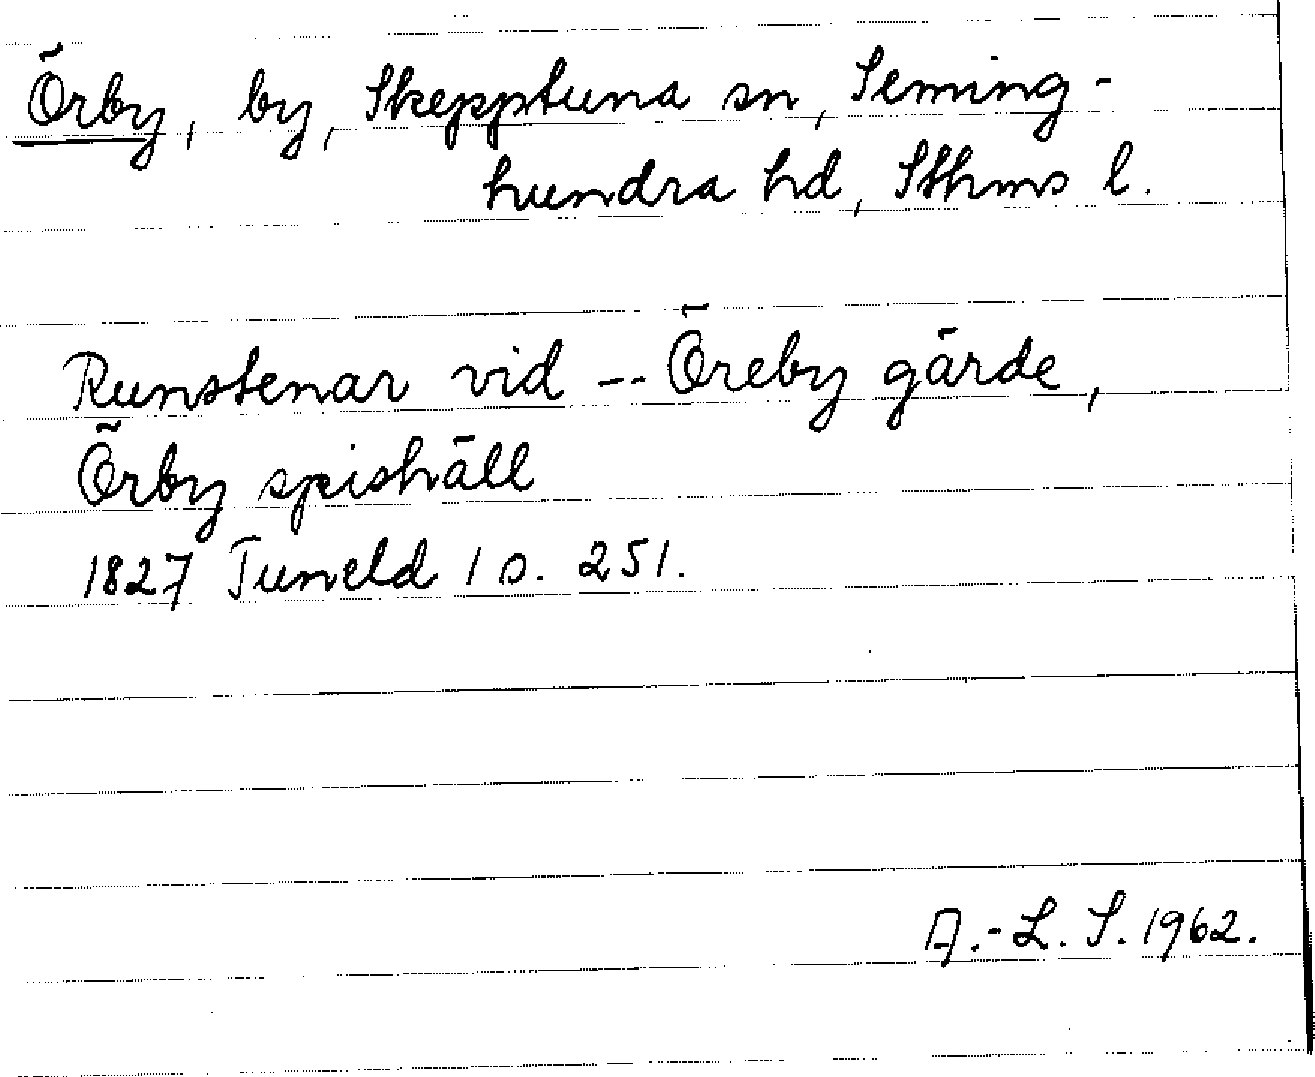 Örby, by, Skepptuna sn, Seming-
hundra hd, Sthms l.
Runstenar vid -- Öreby gärde,
Örby spishäll
1827 Tuneld 1 s. 251.
A.-L. S. 1962.